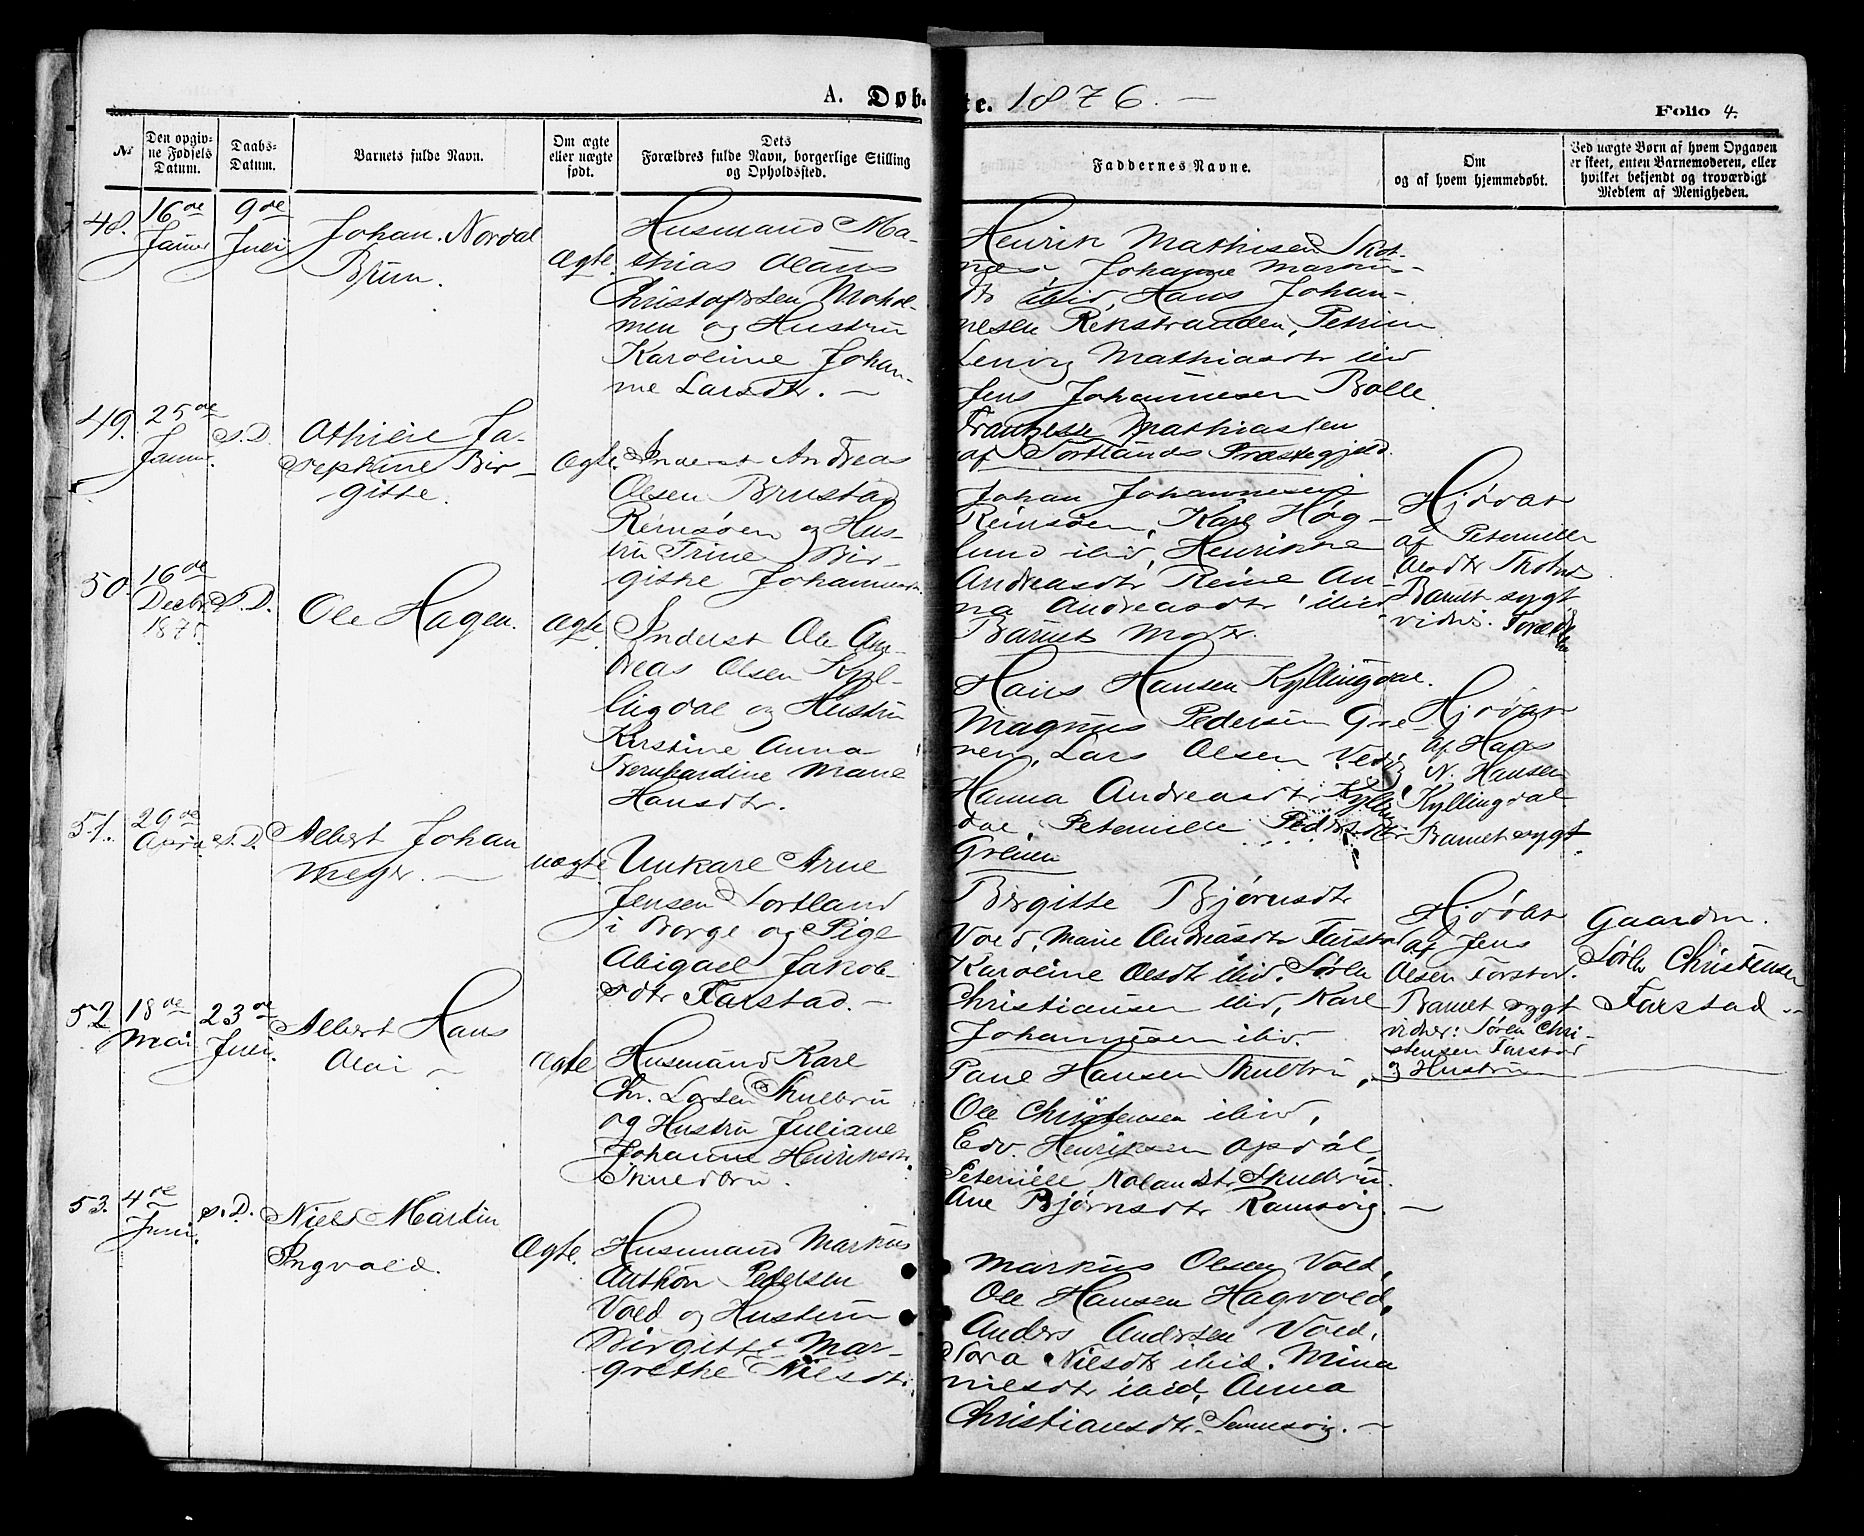 A. Døb-
te. 1876. -
Folio 4.
No
Den opgiv-
ne Fødsels
Datum.
Daabs-
Datum.
Barnets fulde Navn.
Om ægte
eller uægte
født.
Dets
Forældres fulde Navn, borgerlige Stilling
og Opholdssted.
Faddernes Navne.
Om
og af hvem hjemmedøbt.
Ved uægte Børn af hvem Opgaven
er skeet, enten Barnemoderen, eller
hvilket bekjendt og troværdigt
Medlem af Menigheden.
48.
16de
Januar
9de
Juli
Johan Nordal
Brun.
Ægte.
Husmand Ma-
thias Olaus
Christofersen Mohol-
men og Hustru
Karoline Johan-
ne Larsdtr. -
Henrik Mathisen Skot-
næs, Johanne Markus-
dtr ibid, Hans Johan-
nesen Rekstranden, Petrine
Lenvig Mathiasdtr ibid
Jens Johannesen Bolle.
Frantzese Mathiasten
af Sortlands Præstegjeld.
49.
25de
Januar.
s. D.
Athilie Jo-
sephine Bir-
gitte.
Ægte.
Inderst Andreas
Olsen Brustad
Reinsøen og Hus-
tru Trine Bir-
gitte Johannesdtr
Johan Johannesen
Reinsøen, Karl Høg-
lund ibid, Henrikke
Andreasdtr Reine An-
na Andreasdtr ibid
Barnets Moder.
Hjdøbt
af Peternelle
Olsdtr
Barnet sygt
vidner. Forældrene
50.
16de
Decbr
1875.
s. D.
Ole Hagen.
Ægte.
Inderst Ole An-
dreas Olsen Kyl-
lingdal og Hustru
Kirstine Anna
Bernhardine Marie
Hansdtr.
Hans Hansen Kyllingdal.
Magnus Pedersen Gre-
nen, Lars Olsen Vedvig
Hanna Andreasdtr Kylling
dal, Peternelle Pedersdtr
Grenen
Hjdøbt
af Hans
N. Hansen
Kyllingdal
Barnet sygt.
51.
29de
April
s. D.
Albert Johan
Meyer. -
uægte
Unkarl Arne
Jensen Sortland
i Borge og Pige
Abigael Jakob-
sdtr Farstad. -
Birgitte Bjørnsdtr
Vold, Marie Andreasdtr Farstad
Karoline Olsdtr ibid, Søren
Christiansen ibid, Karl
Johannesen ibid.
Hjdøbt
af Jens
Olsen Farstad.
Barnet sygt
vidner: Søren Chri-
stensen Farstad
og Hustru
Gaardm.
Søren Christensen
Farstad -
52
18de
Mai
23de
Juli
Albert Hans
Olai -
Ægte
Husmand Karl
Chr. Larsen Skulbru
og Hustru Juliane
Johanne Henriksdtr.
Skuldbru.
Paul Hansen Skulbru,
Ole Christensen ibid,
Edv. Henriksen Opdøl,
Peternelle Rolandsdtr Skulbru.
Ane Bjørnsdtr Ramsvig. -
53.
4de
Juni.
s. D.
Niels Martin
Ingvald.
Ægte.
Husmand Markus
Anthon Pedersen
Vold og Hustru
Birgitte Mar-
grethe Nilsdtr.
Markus Olsen Vold,
Ole Hansen Hagvold,
Anders Andersen Vold,
Nora Nielsdtr ibid. Mina
Nilsdtr ibid, Anna
Christiansdtr Sennesvig. -